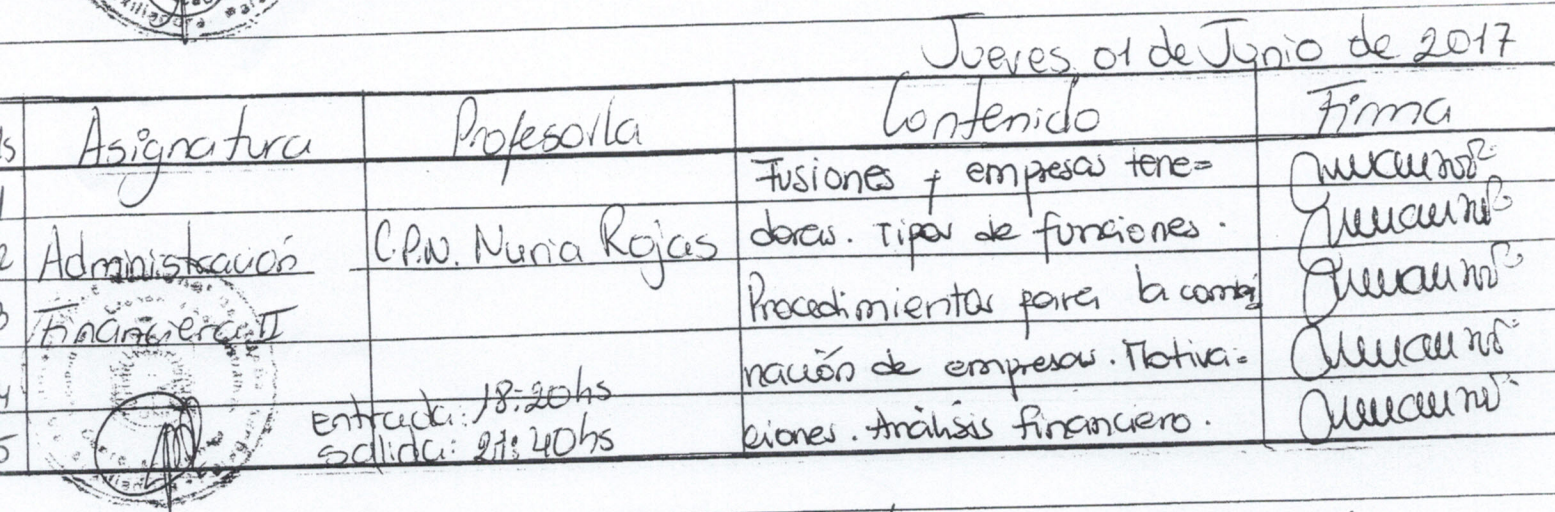 Jueves, 01 de Junio de 2017
Asignatura Profesor/la Contenido Firma
Fusiones y empresas tene=
2 Administración C.P.N. Nuria Rojas doras. Tipos de funciones.
3 Financiera II Procedimientos para la combi
4 Entrada: 18:20hs nación de empresas. Motiva=
5 Salida: 21:40hs ciones. Análisis financiero.